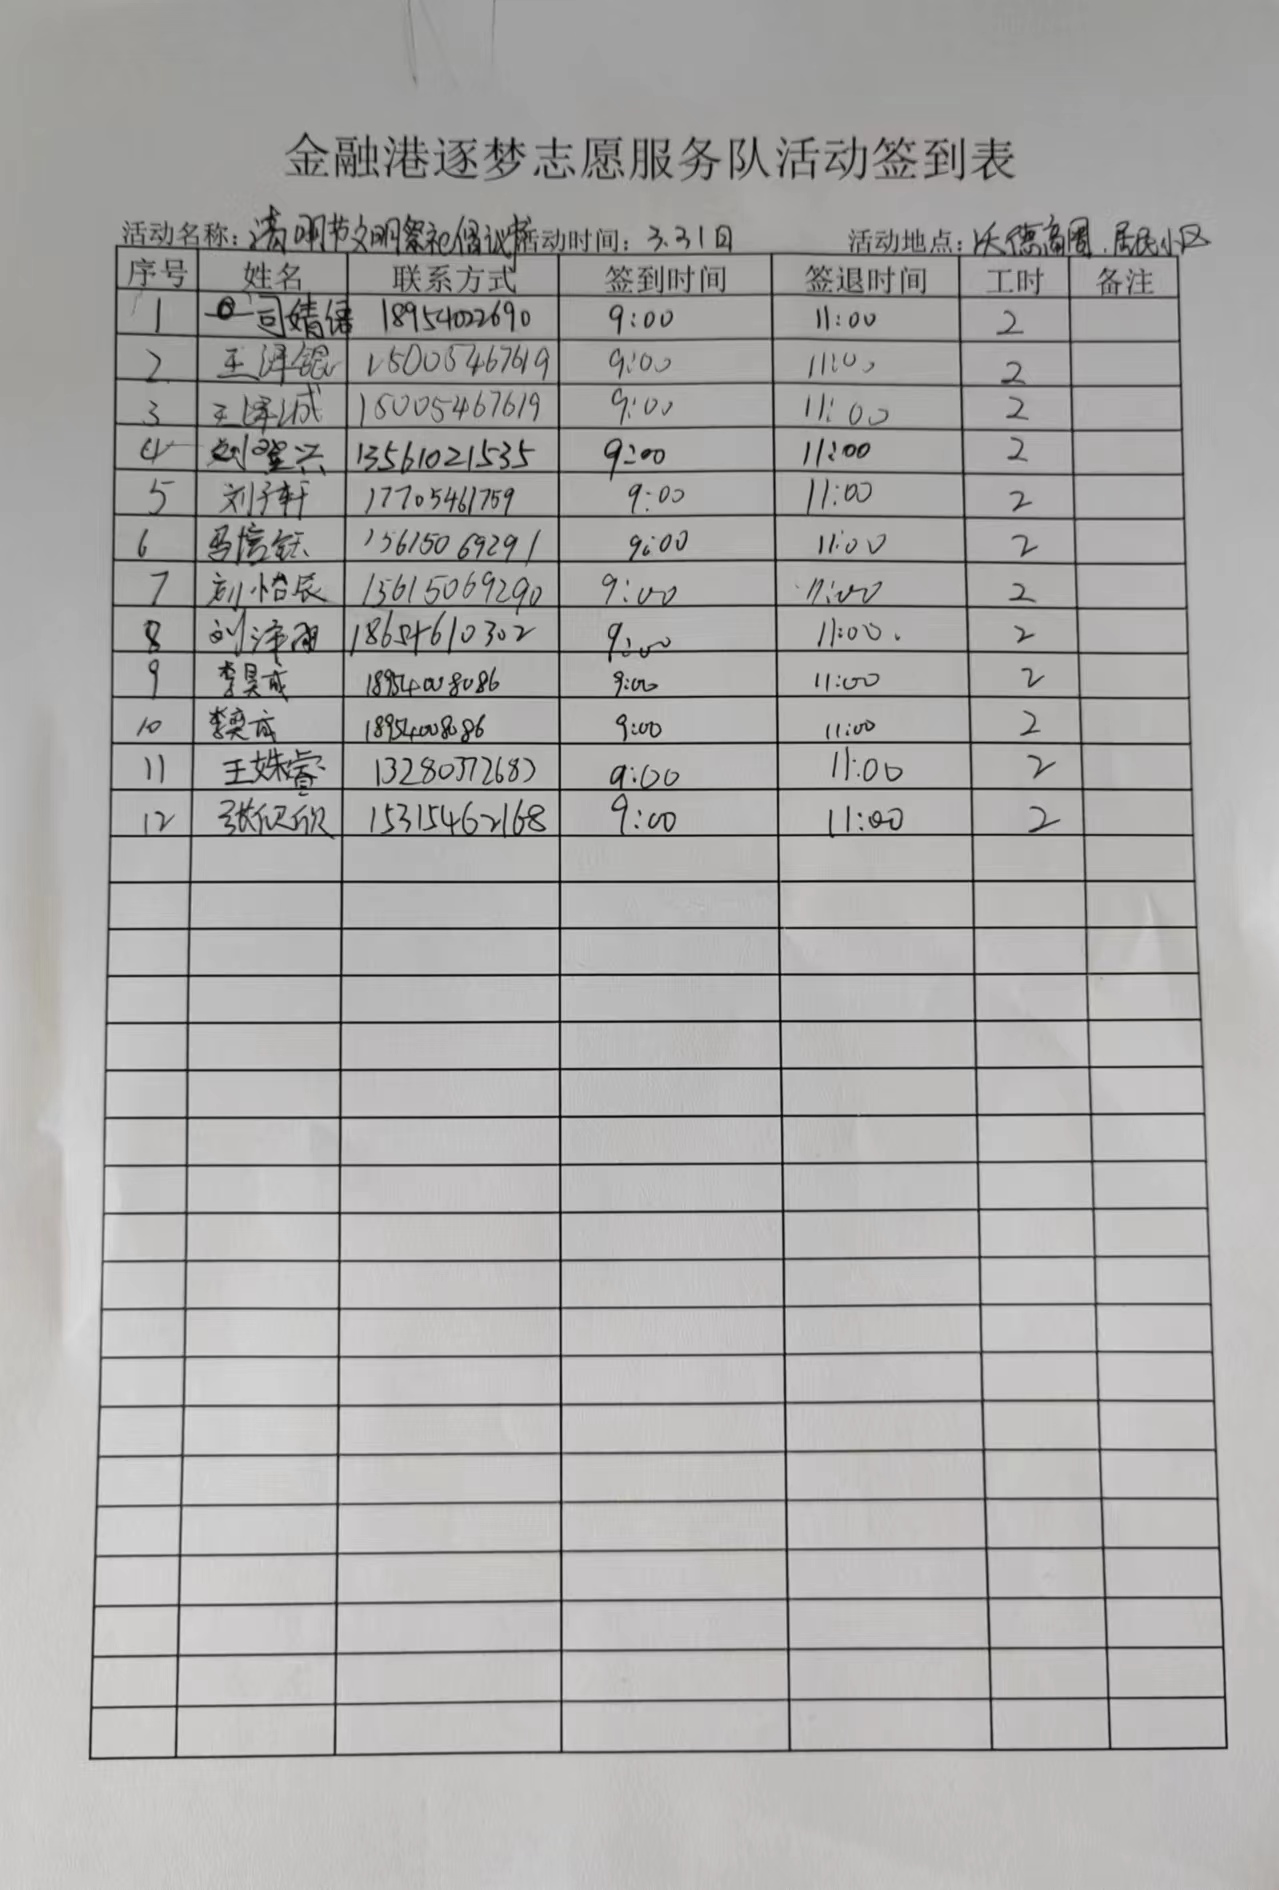 金融港逐梦志愿服务队活动签到表
活动名称：清明节文明祭祀倡议书 活动时间：3.31日 活动地点：沃德商圈.居民小区
序号 姓名 联系方式 签到时间 签退时间 工时 备注
1 司婧语 18954022690 9:00 11:00 2
2 王泽锟 15005467619 9:00 11:00 2
3 王泽成 15005467619 9:00 11:00 2
4 刘登兴 13561021535 9:00 11:00 2
5 刘子轩 17705461759 9:00 11:00 2
6 马信钰 15615069291 9:00 11:00 2
7 刘怡辰 13615069290 9:00 11:00 2
8 刘泽雨 18654610302 9:00 11:00. 2
9 李昊成 18954008086 9:00 11:00 2
10 李奕成 18954008086 9:00 11:00 2
11 王姝睿 13280372682 9:00 11:00 2
12 张欣欣 15315462168 9:00 11:00 2